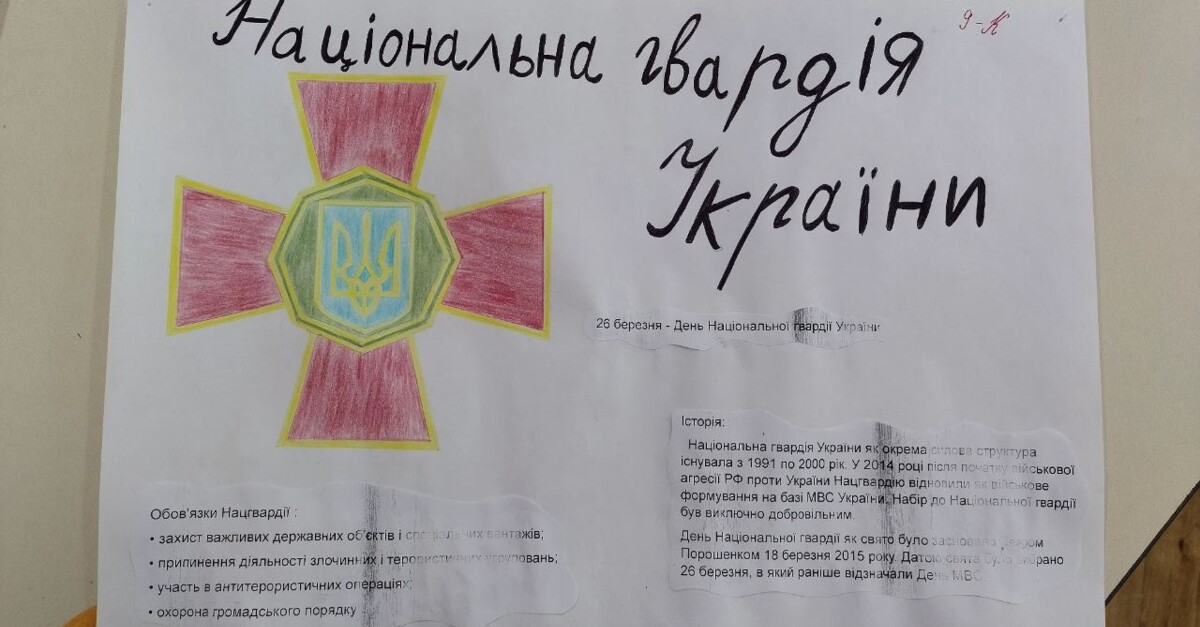 Національна гвардія
9-К
України
26 березня - День Національної гвардії України
Історія:
Національна гвардія України як окрема силова структура
існувала з 1991 по 2000 рік. У 2014 році після початку військової
агресії РФ проти України Нацгвардію відновили як військове
формування на базі МВС України. Набір до Національної гвардії
був виключно добровільним.
День Національної гвардії як свято було засновано
Порошенком 18 березня 2015 року. Датою свята було обрано
26 березня, в який раніше відзначали День МВС.
Обов'язки Нацгвардії :
• захист важливих державних об'єктів і спеціальних вантажів;
• припинення діяльності злочинних і терористичних угруповань;
• участь в антитерористичних операціях;
• охорона громадського порядку